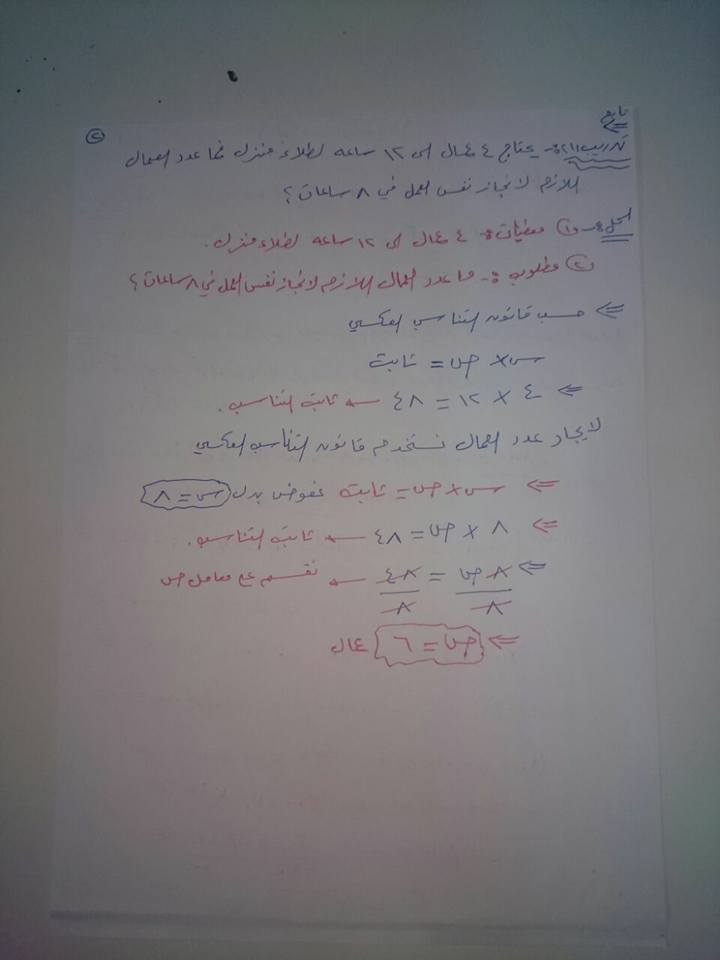 تابع
②
تدريب ٢١١:- يحتاج ٤ عمال الى ١٢ ساعه لطلاء منزل فما عدد العمال
اللازم لانجاز نفس العمل في ٨ ساعات؟
الحل:- ① معطيات:- ٤ عمال الى ١٢ ساعه لطلاء منزل.
② مطلوب:- ما عدد العمال اللازم لانجاز نفس العمل في ٨ ساعات؟
⇐ حسب قانون التناسب العكسي
س × ص = ثابت
⇐ ٤ × ١٢ = ٤٨ ← ثابت التناسب.
لايجاد عدد العمال نستخدم قانون التناسب العكسي
⇐ س × ص = ثابت نعوض بدل س = ٨
⇐ ٨ × ص = ٤٨ ← ثابت التناسب.
⇐ ٨ ص / ٨ = ٤٨ / ٨ ← نقسم ع معامل ص
⇐ ص = ٦ عمال